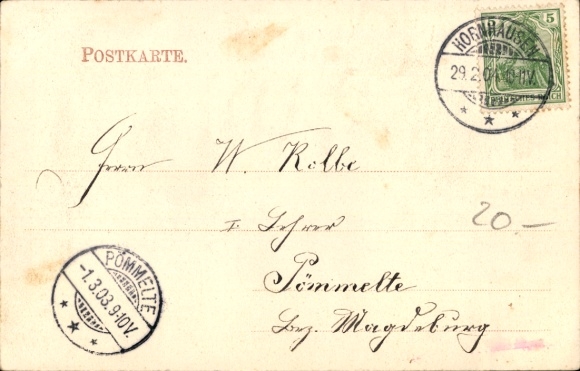 POSTKARTE.
5
HORNHAUSEN
29.2.04. 10-11V.
DEUTSCHES REICH
Herrn W. Kolbe
I. Lehrer
20.-
Pömmelte
Bez. Magdeburg
PÖMMELTE
-1.3.03.9-10V.